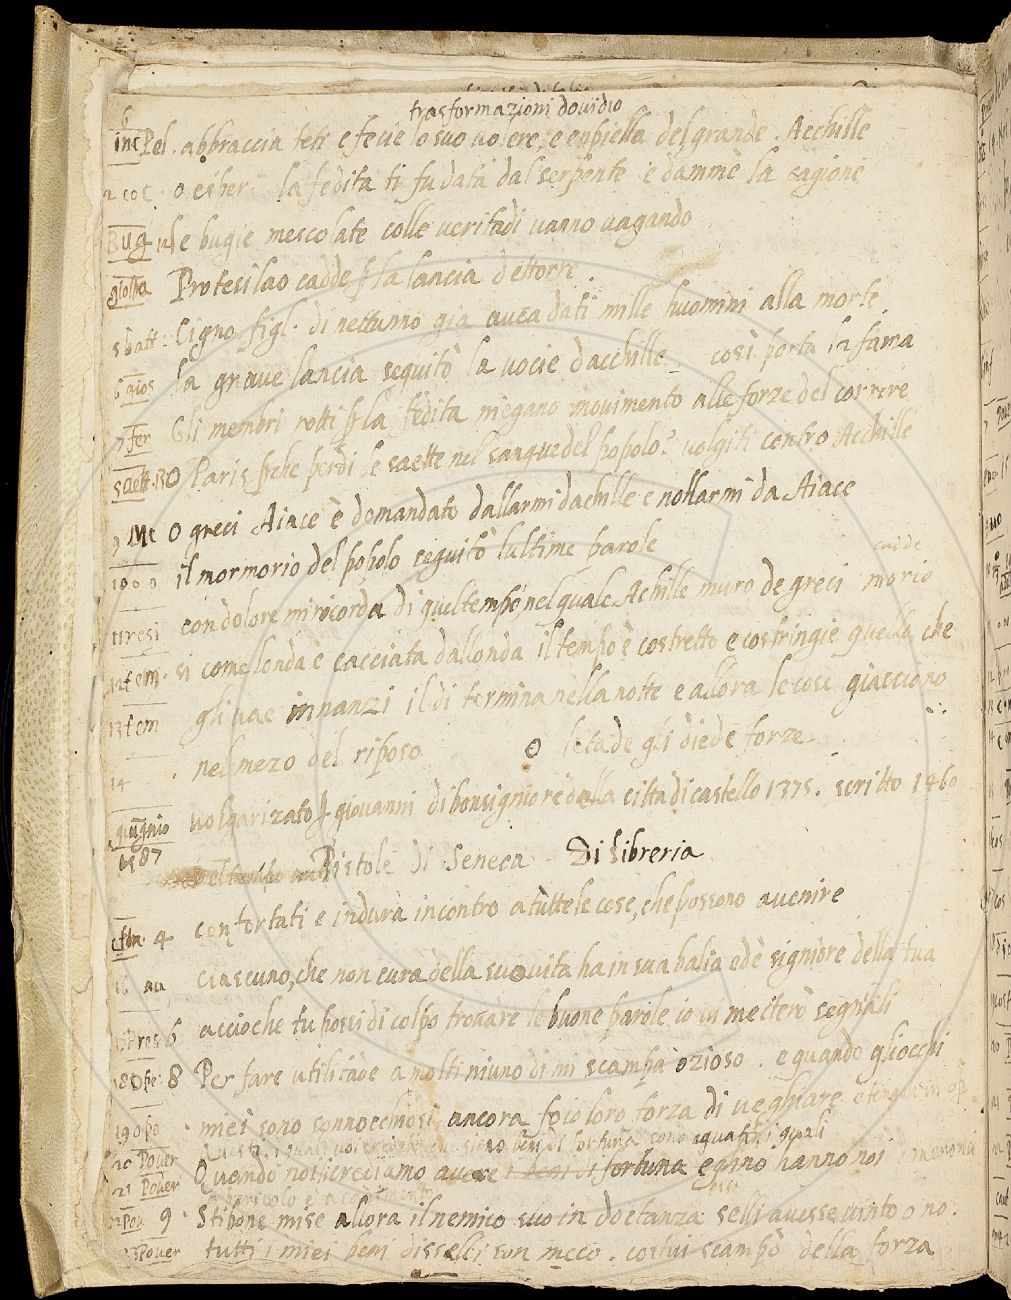 trasformazioni dovidio
6
inc Pel. abbraccia teti e fecie lo suo volere, e enpiella del grande Acchille
2 coc o ciber la fedita ti fu data dal serpente e dammè la cagione
Bug le bugie mescolate colle verità di vanno vagando
Protesilao cadde p la lancia dettorre.
5 batt: Cigno figl. di nettunno gia avea dati mille huomini alla morte
6 gios la grave lancia seguitò la vocie dacchille così porta la fama
7 fer Gli membri rotti p la fedita niegano movimento alle forze del correre
saett. O Paris perche perdi le saette nel sangue del popolo? volgiti contro Acchille
9 Mc O greci Aiace è domandato dallarmi dachille e nollarmi da Aiace
10 il mormorio del popolo seguitò lultime parole
cadde
11 resi con dolore mi ricorda di quel tempo, nel quale Achille muro de greci morio
12 fem. si come londa è cacciata dallonda il tempo è costretto e costringie quello, che
13 fem gli vae innanzi il di termina nella notte e allora le cose giacciono
14 nel mezo del riposo O letade gli diede forze
volgarizato p giovanni di bonsigniore della citta di castello 1375. scritto 1460
giugnio
1587
Pistole di Seneca Di libreria
4 confortati e indura incontro a tutte le cose, che possono avenire
16 au, ciascuno, che non cura della sua vita ha in sua balia ed è signiore della tua
Pres 6 accioche tu possi di colpo trovare le buone parole io vi mecterò segniali
18 Ope 8 Per fare utilitade a molti niuno di mi scampa ozioso. e quando gliocchi
19 opo miei sono sonnocchiosi ancora fo io loro forza di veghiare e tengoli in op
Questi, i quali voi credete che sieno beni di fortuna sono aguati, i quali
20 Pover Quando noi crediamo avere i beni di fortuna eglino hanno noi e menonci
21 Pover a pericolo e a
22 Pov 9 Stibone mise allora il nemico suo in dottanza selli avesse vinto o no.
23 Pover tutti i miei beni disselli son meco. costui scampò della forza